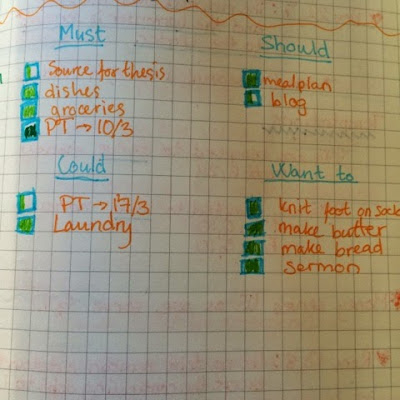 Must
Source for thesis
dishes
groceries
PT → 10/3
Should
mealplan
blog
Could
PT → 17/3
Laundry
Want to
knit foot on sock
make butter
make bread
sermon